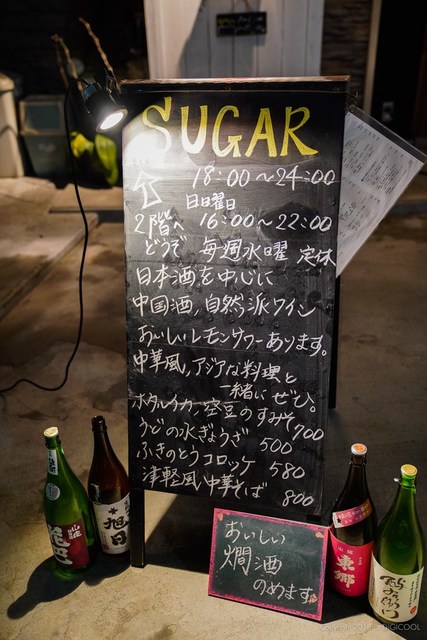 SUGAR
18:00～24:00
日曜日
2階へ 16:00～22:00
どうぞ 毎週水曜 定休
日本酒を中心に
中国酒、自然派ワイン
おいしいレモンサワーあります。
中華風、アジアな料理と
一緒にぜひ。
ホタルイカ、空豆のすみそ 700
うどの水ぎょうざ 500
ふきのとうコロッケ 580
津軽風中華そば 800
おいしい
燗酒
のめます
旭日
東郷